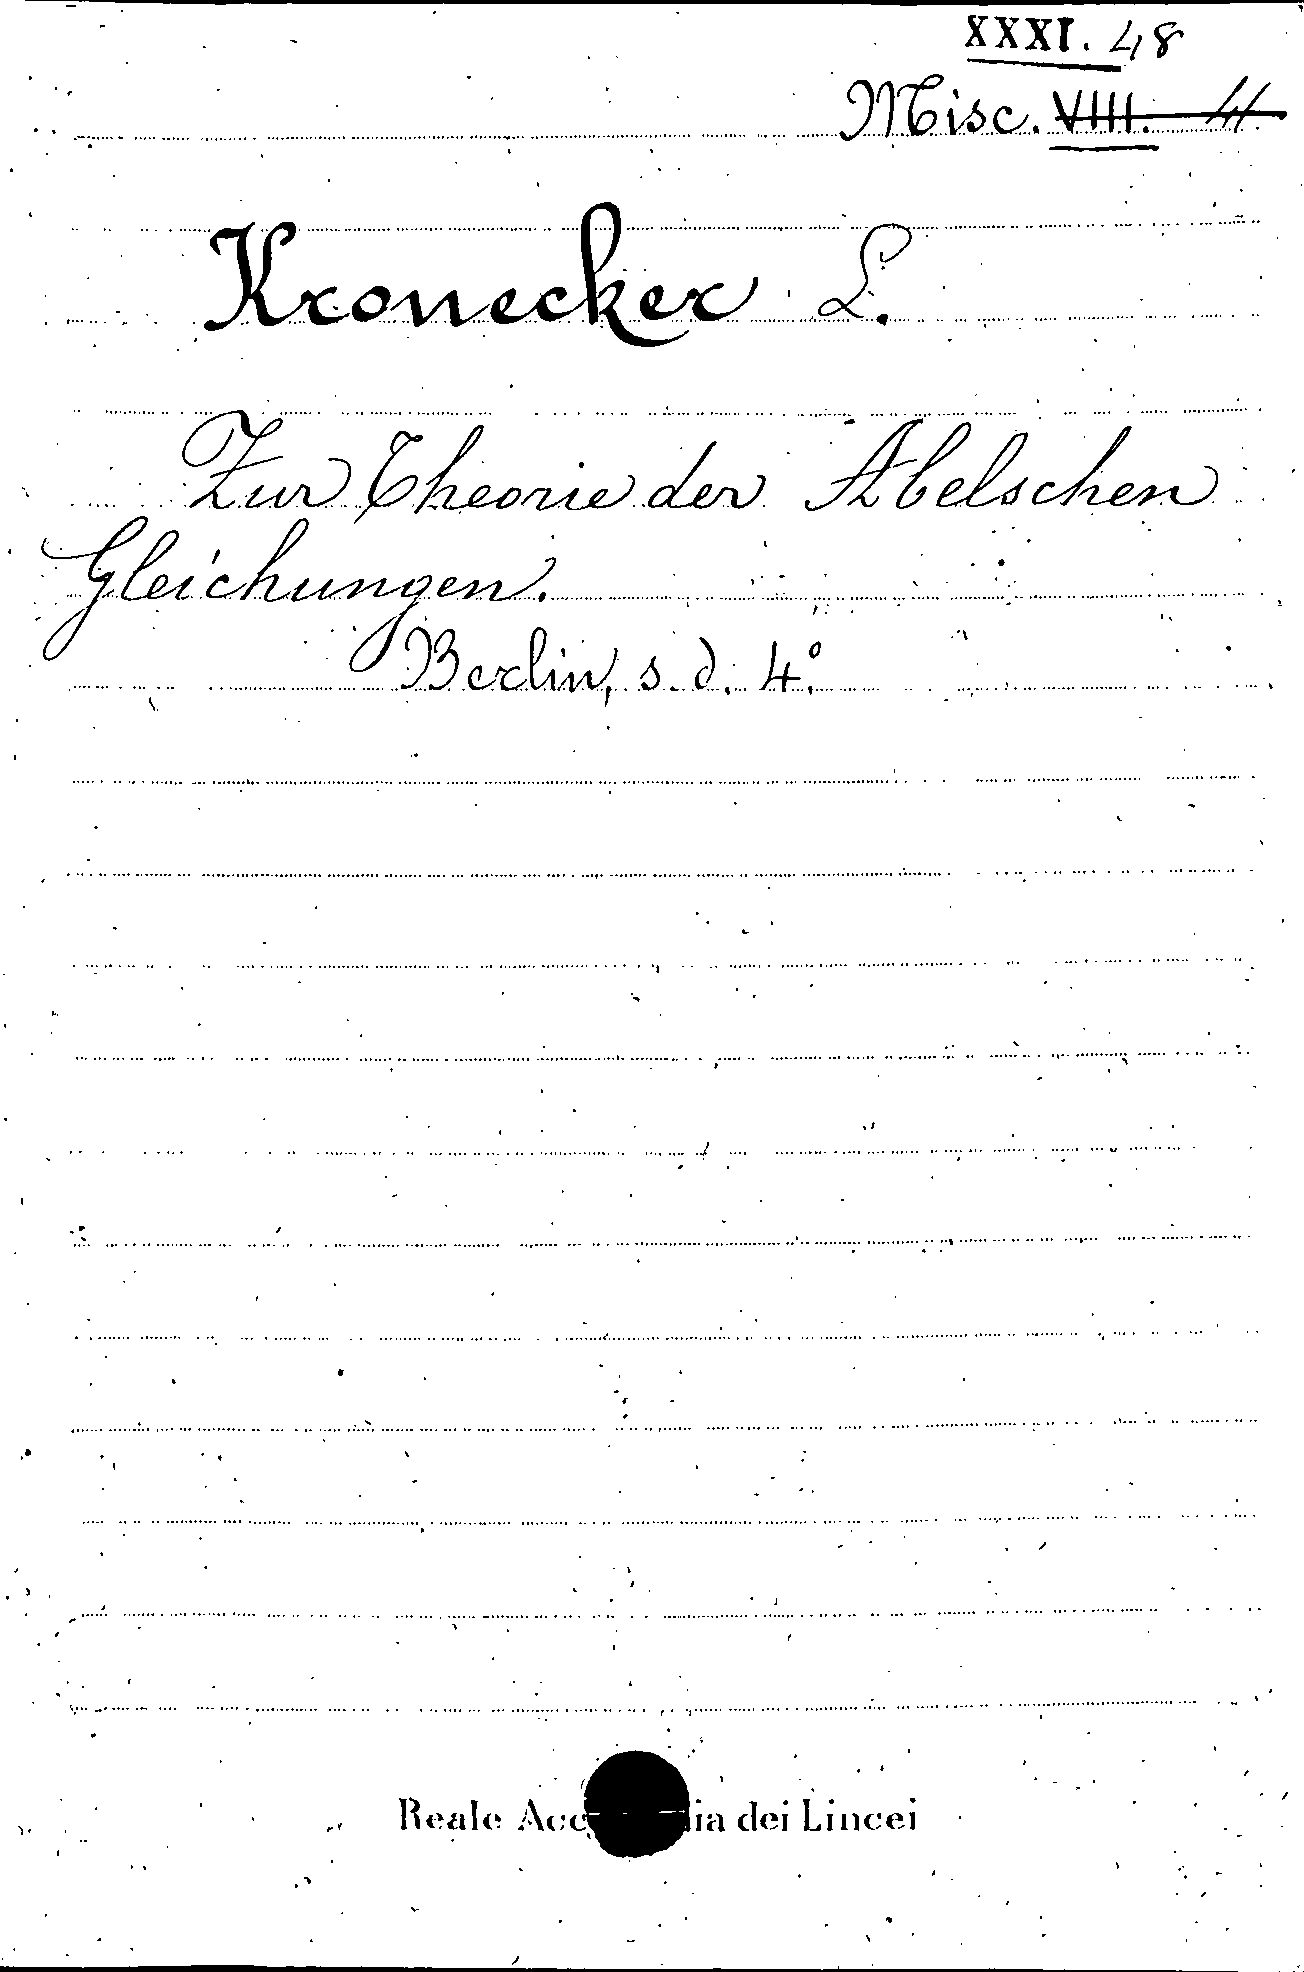 XXXI. 48
Misc. VIIII. 41.
Kronecker L.
Zur Theorie der Abelschen
Gleichungen.
Berlin, s. d. 4.º
Reale Acc ia dei Lincei